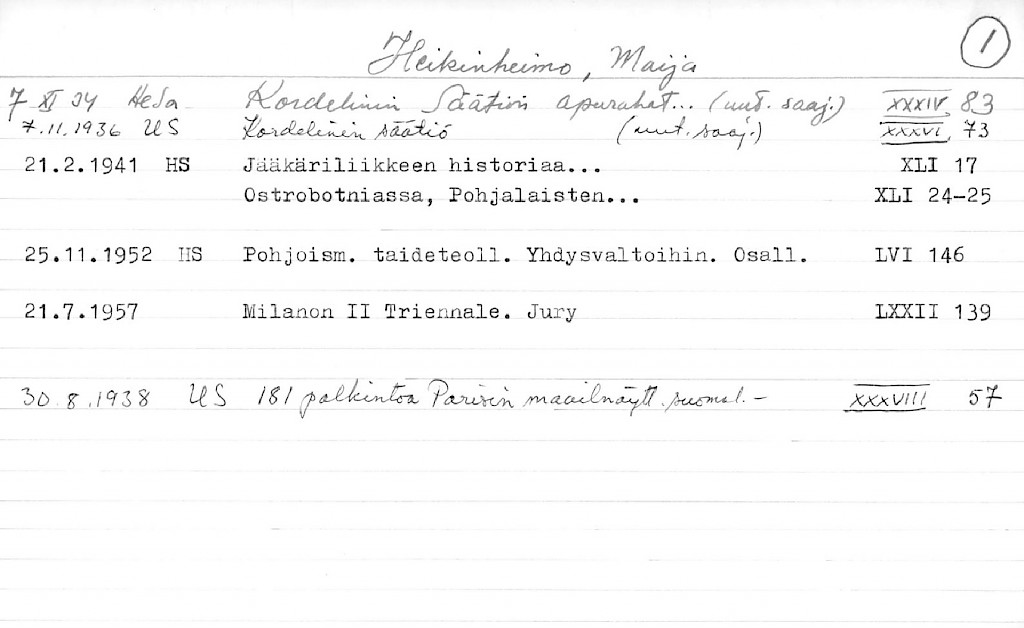 1
Heikinheimo, Maija
7 XI 34 HeSa Kordelinin Säätiön apurahat... (uut. saaj.) XXXIV 83
7.11.1936 US Kordelinin säätiö (uut. saaj.) XXXVI 73
21.2.1941 HS Jääkäriliikkeen historiaa... XLI 17
Ostrobotniassa, Pohjalaisten... XLI 24-25
25.11.1952 HS Pohjoism. taideteoll. Yhdysvaltoihin. Osall. LVI 146
21.7.1957 Milanon II Triennale. Jury LXXII 139
30.8.1938 US 181 palkintoa Pariisin maailnäytt. suomal. - XXXVIII 57